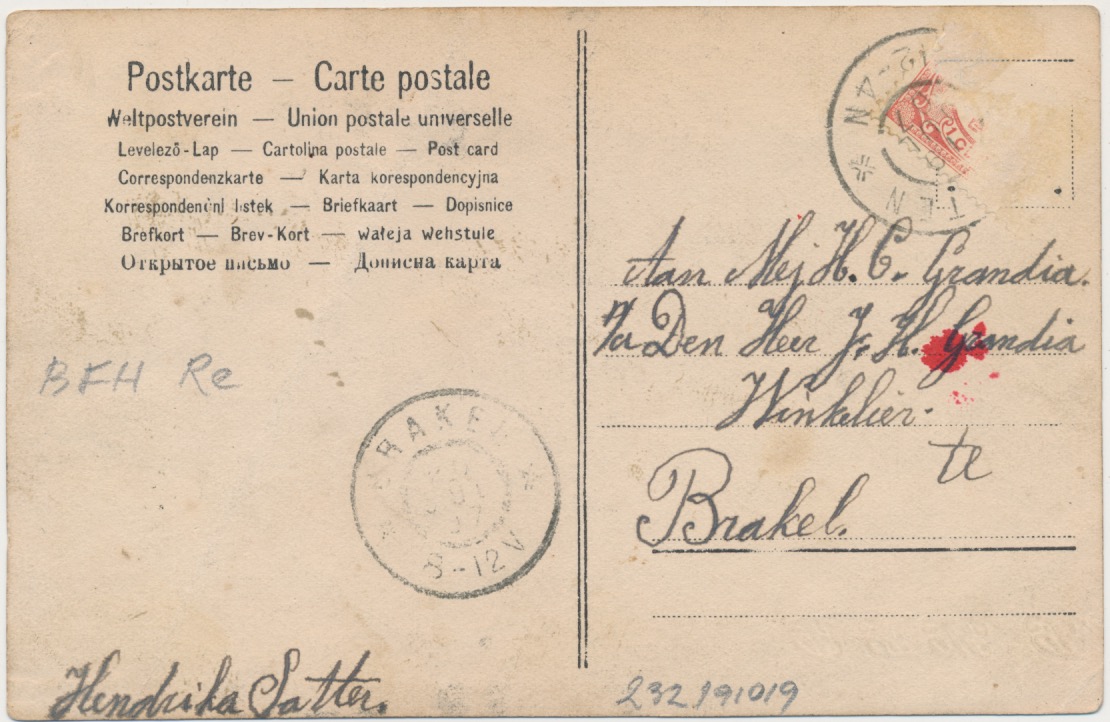 Postkarte — Carte postale
Weltpostverein — Union postale universelle
Levelező-Lap — Cartolina postale — Post card
Correspondenzkarte — Karta korespondencyjna
Korrespondenční lístek — Briefkaart — Dopisnice
Brefkort — Brev-Kort — Waťeja Wehstule
Открытое письмо — Дописна карта
12-4N
TEN
Aan Mej H. C. Grandia.
p/a Den Heer J. H. Grandia
Winkelier.
te
Brakel.
BFH Re
BRAKEL
8-12V
Hendrika Satter.
232191019